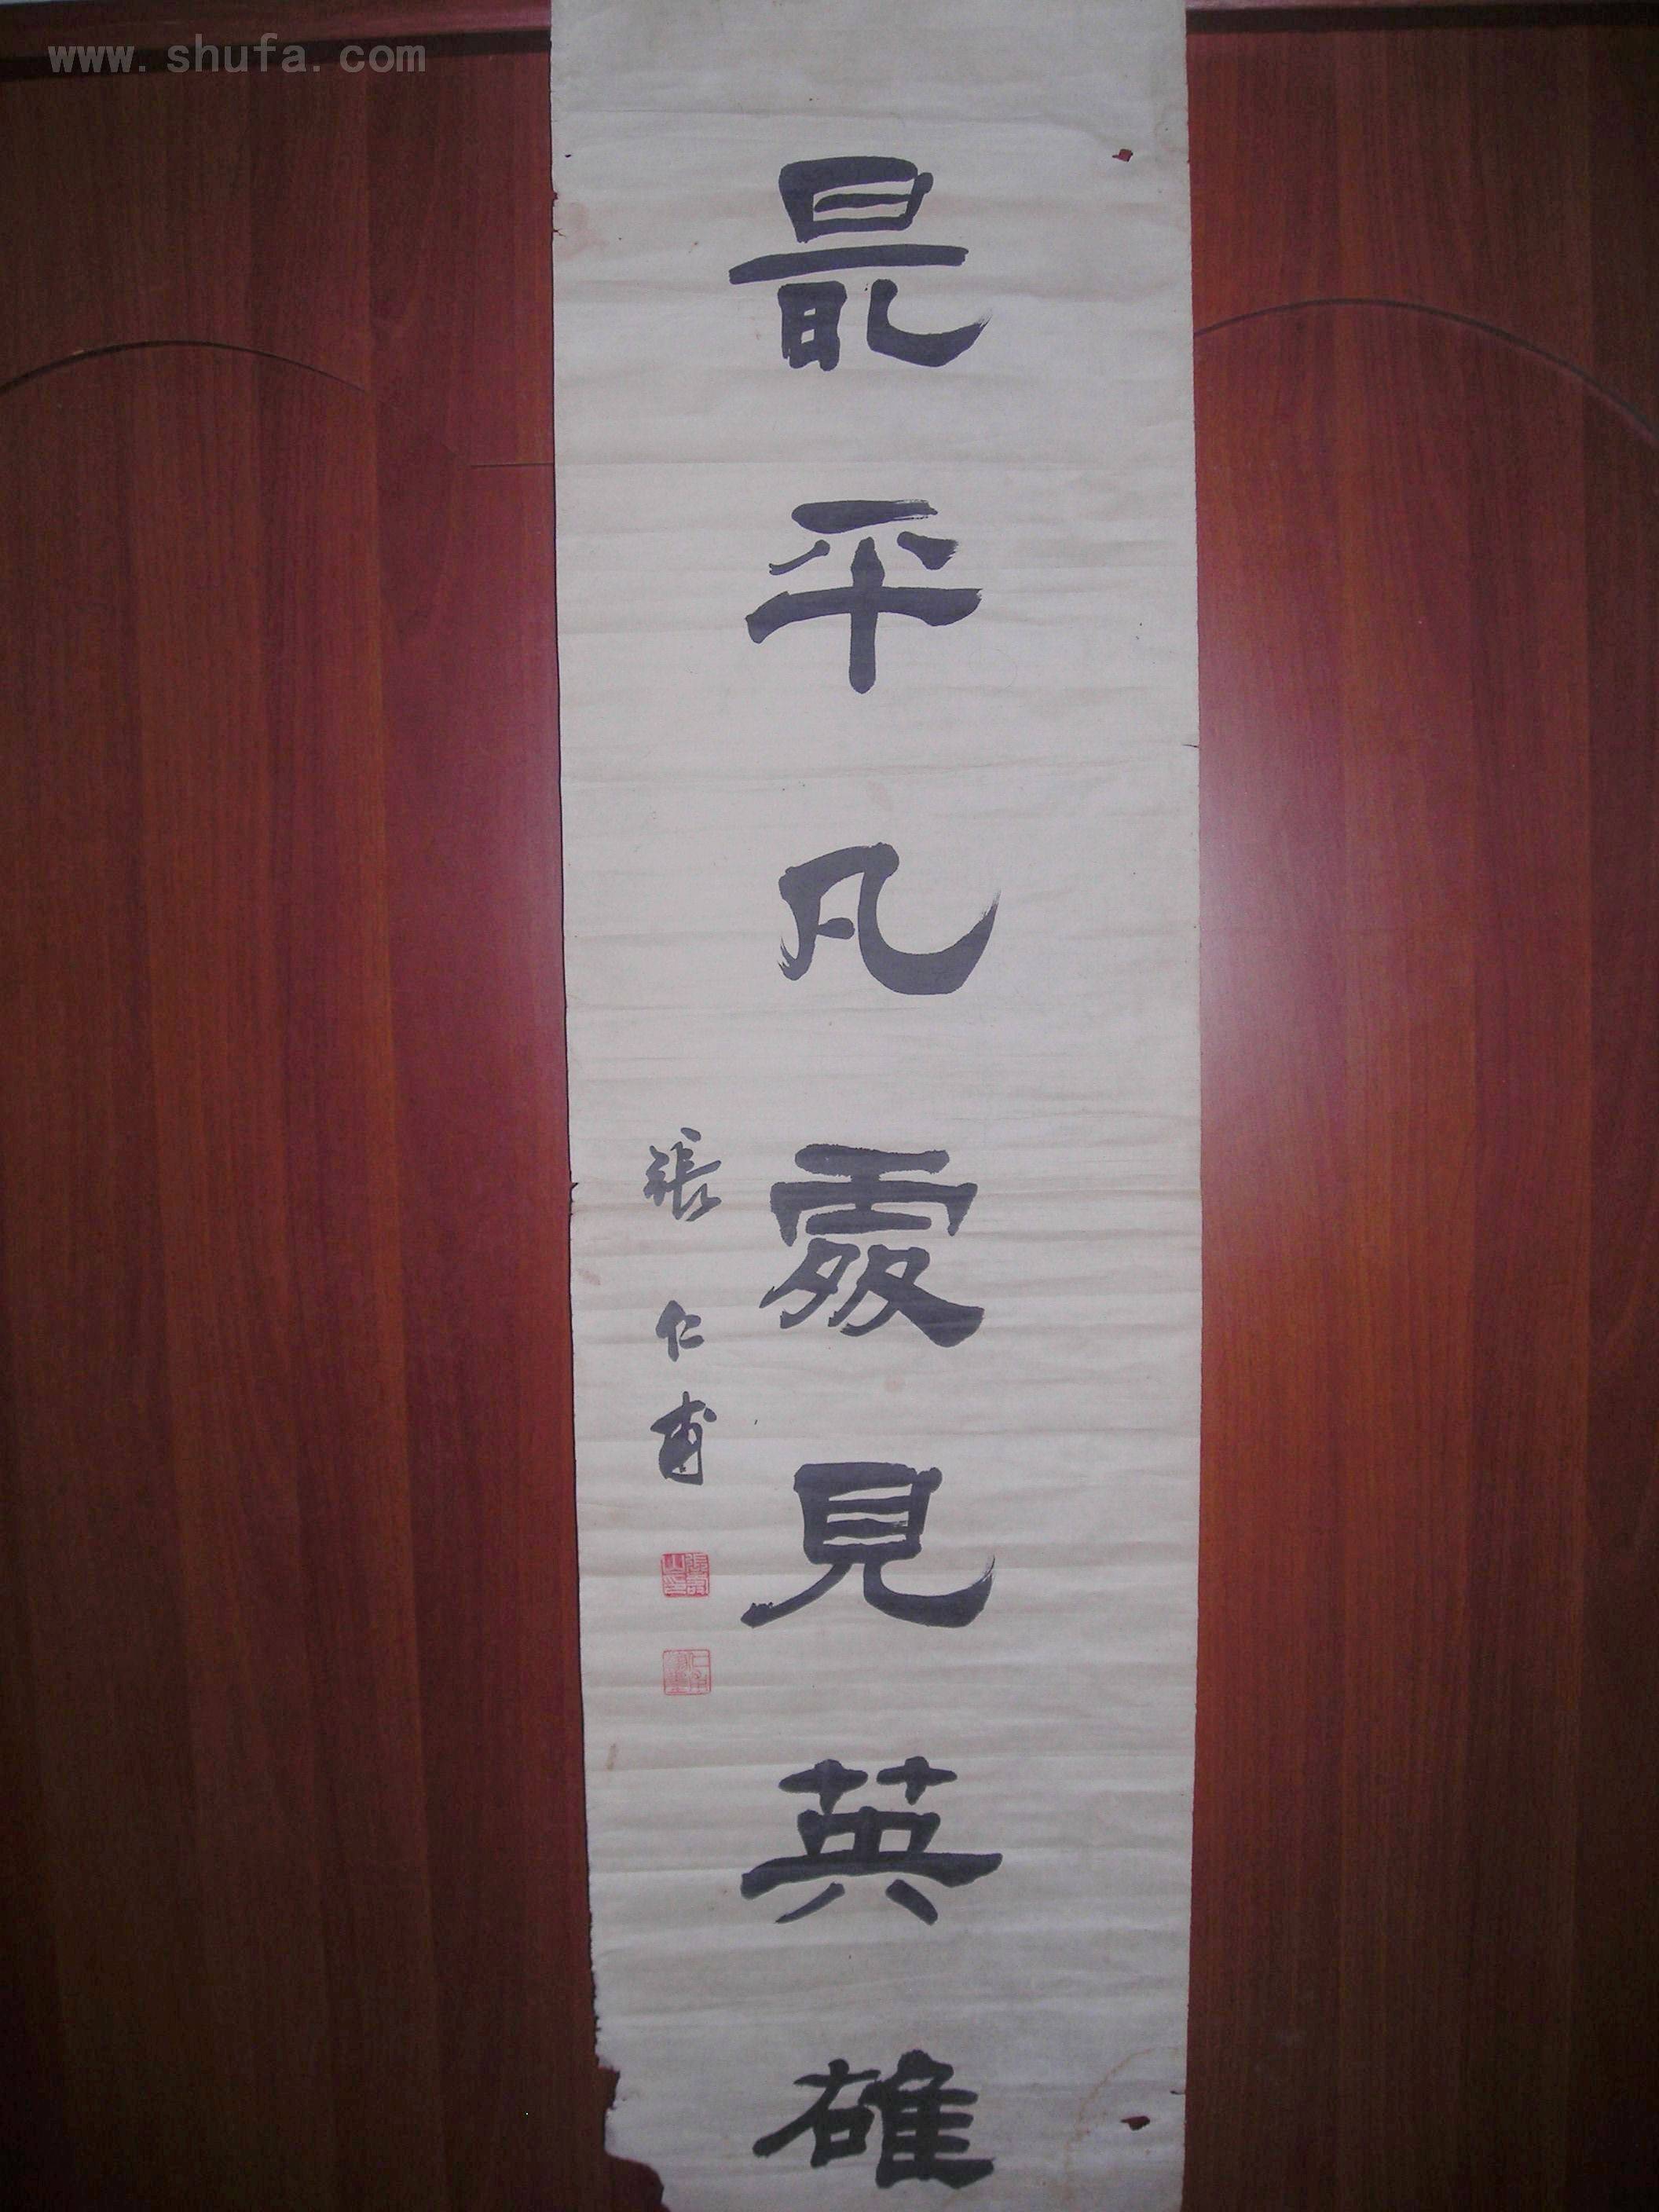 www.shufa.com
最平凡處見英雄
張仁甫